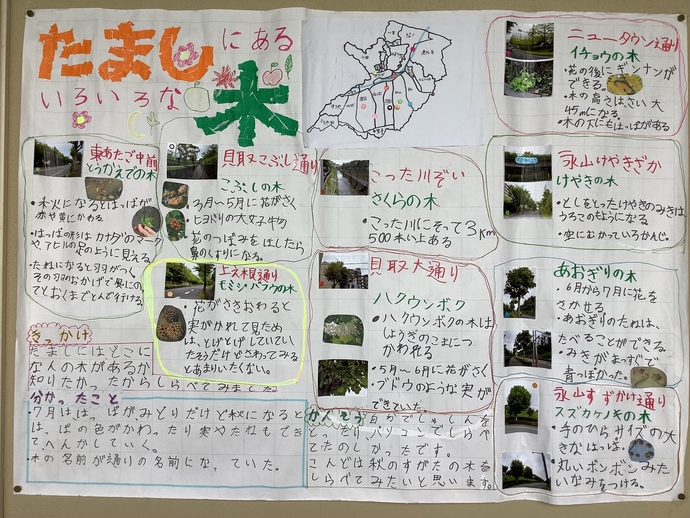 たましにある
いろいろな木
東あたご中前
とうかえでの木
・木火になるとはっぱが
赤や黄にかわる。
・はっぱの形はカナダのマーク
や、アヒルの足のように見える。
・たねになると羽がつく。
その羽のおかげで風にのっ
てとおくまでとんで行ける。
貝取こぶし通り
こぶしの木
・3月〜5月に花がさく
・ヒヨドリの大好物
・花のつぼみをほしたら
鼻のくすりになる。
上之根通り
モミジバフウの木
・花がさきおわると
実がかれて見ため
は、とげとげしていてい
たそうだけどさわってみる
とあまりいたくない。
こった川ぞい
さくらの木
・こった川にそって3km
500本い上ある
貝取大通り
ハクウンボク
・ハクウンボクの木は
しょうぎのこまにつ
かわれる
・5月〜6月に花がさく
・ブドウのような実が
できていた。
ニュータウン通り
イチョウの木
・花の後にギンナンが
できる。
・木の高さはさい大
45mになる。
・木の下にもはっぱがある
永山けやきざか
けやきの木
・としをとったけやきのみきは
うろこのようになる
・空にむかっているかんじ。
あおぎりの木
・6月から7月に花を
さかせる
・あおぎりのたねは、
たべることができる
・みきがまっすぐで
青っぽかった。
永山すずかけ通り
スズカケノキの木
・手のひらサイズの大
きなはっぱ。
・丸いボンボンみた
いなみをつける。
きっかけ
たましにはどこに
なんの木があるか
知りたかったからしらべてみました。
分かったこと
・7月ははっぱがみどりだけど秋になると
は、ぱの色がかわったり実やたねもでき
てへんかしていく。
・木の名前が通りの名前になっていた。
かんそう
自分でしゃしんを
とったり、パソコンでしらべ
てたのしかったです。
こんどは秋のすがたの木を
しらべてみたいと思います。